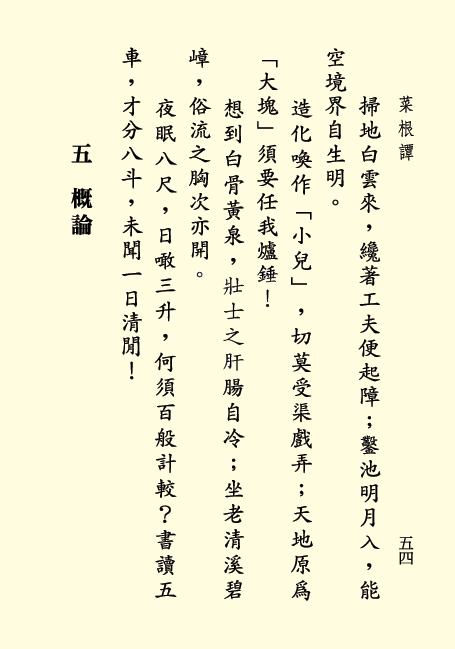 菜根譚
五四
掃地白雲來，纔著工夫便起障；鑿池明月入，能
空境界自生明。
造化喚作「小兒」，切莫受渠戲弄；天地原為
「大塊」須要任我爐錘！
想到白骨黃泉，壯士之肝腸自冷；坐老清溪碧
嶂，俗流之胸次亦開。
夜眠八尺，日噉三升，何須百般計較？書讀五
車，才分八斗，未聞一日清閒！
五　概論